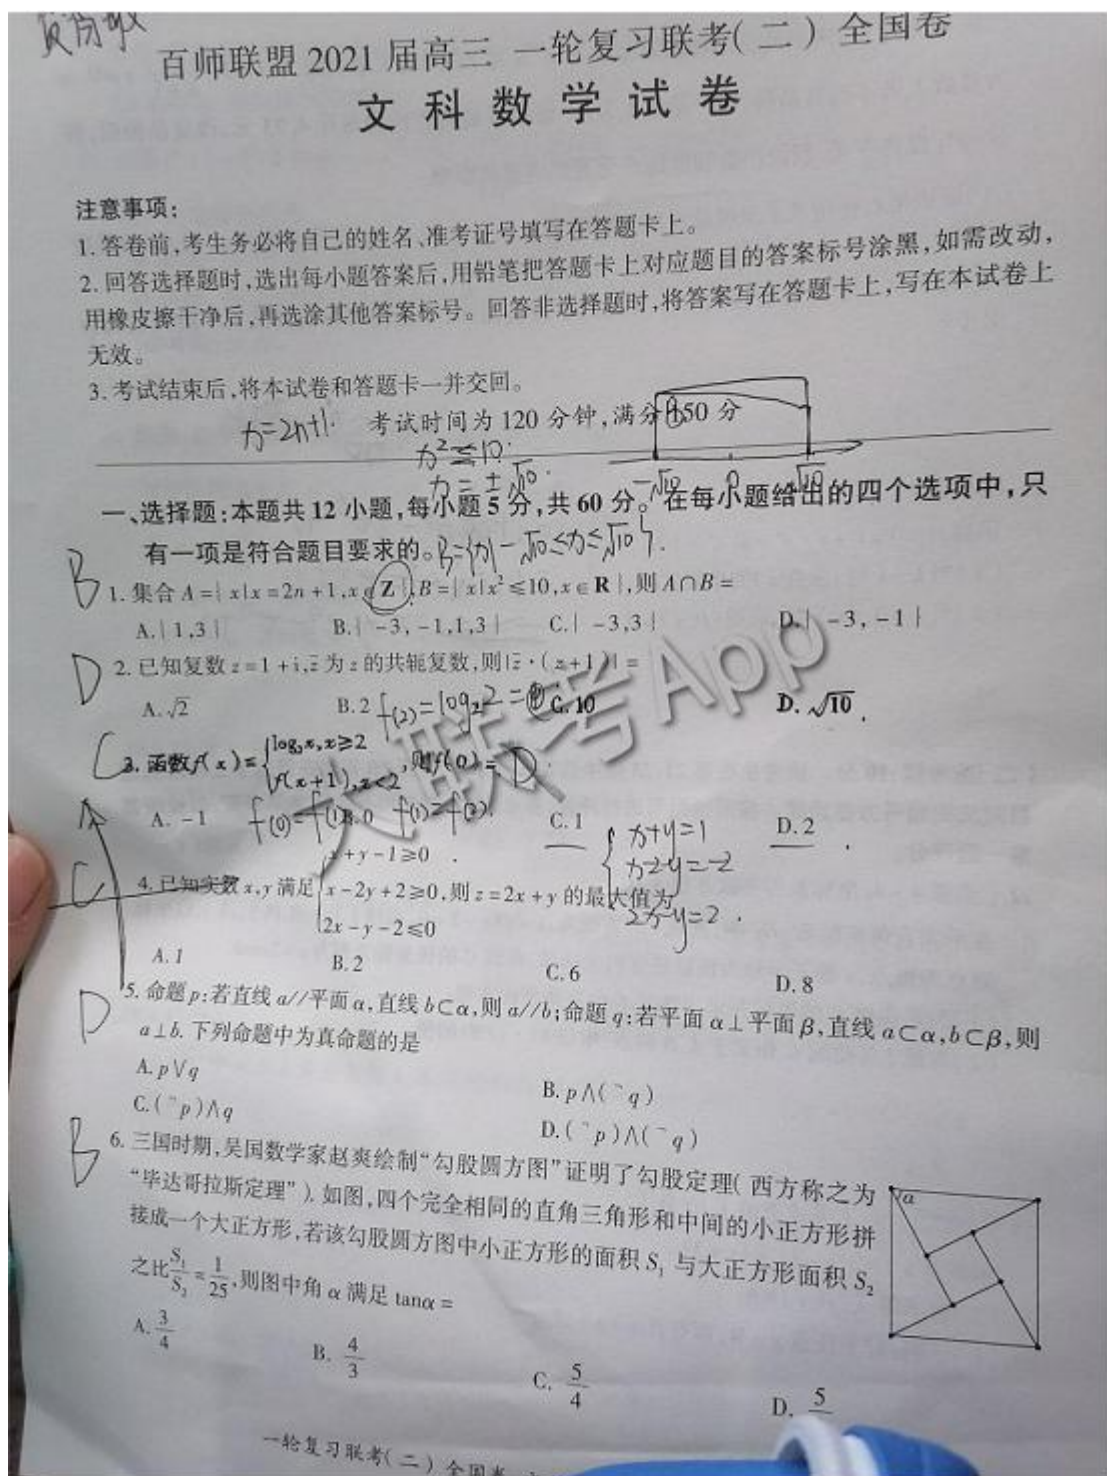 百师联盟2021届高三 一轮复习联考(二)全国卷
文科数学试卷
注意事项:
1.答卷前,考生务必将自己的姓名、准考证号填写在答题卡上。
2.回答选择题时,选出每小题答案后,用铅笔把答题卡上对应题目的答案标号涂黑,如需改动,
用橡皮擦干净后,再选涂其他答案标号。回答非选择题时,将答案写在答题卡上,写在本试卷上
无效。
3.考试结束后,将本试卷和答题卡一并交回。
x=2n+1. 考试时间为120分钟,满分150分
x²≤10.
x=±√10. -√10 0 √10
一、选择题:本题共12小题,每小题5分,共60分。在每小题给出的四个选项中,只
有一项是符合题目要求的。B={x|-√10≤x≤√10}.
B 1.集合A={x|x=2n+1,x∈Z},B={x|x²≤10,x∈R},则A∩B=
A.{1,3} B.{-3,-1,1,3} C.{-3,3} D.{-3,-1}
D 2.已知复数z=1+i,z̄为z的共轭复数,则|z̄·(z+1)|=
A.√2 B.2 f(2)=log₂2= C.10 D.√10
C 3.函数f(x)={log₂x,x≥2
f(x+1),x<2,则f(0)=
A.-1 f(0)=f(1) f(1)=f(2). C.1 D.2
x+y=1
x-2y=-2
2x-y=2.
x+y-1≥0
C 4.已知实数x,y满足{x-2y+2≥0,则z=2x+y的最大值为
2x-y-2≤0
A.1 B.2 C.6 D.8
D 5.命题p:若直线a//平面α,直线b⊂α,则a//b;命题q:若平面α⊥平面β,直线a⊂α,b⊂β,则
a⊥b.下列命题中为真命题的是
A.p∨q B.p∧(¬q)
C.(¬p)∧q D.(¬p)∧(¬q)
B 6.三国时期,吴国数学家赵爽绘制“勾股圆方图”证明了勾股定理(西方称之为
“毕达哥拉斯定理”).如图,四个完全相同的直角三角形和中间的小正方形拼
接成一个大正方形,若该勾股圆方图中小正方形的面积S₁与大正方形面积S₂
之比S₁/S₂=1/25,则图中角α满足tanα=
α
A.3/4 B.4/3 C.5/4 D.5
一轮复习联考(二) 全国卷
大联考App